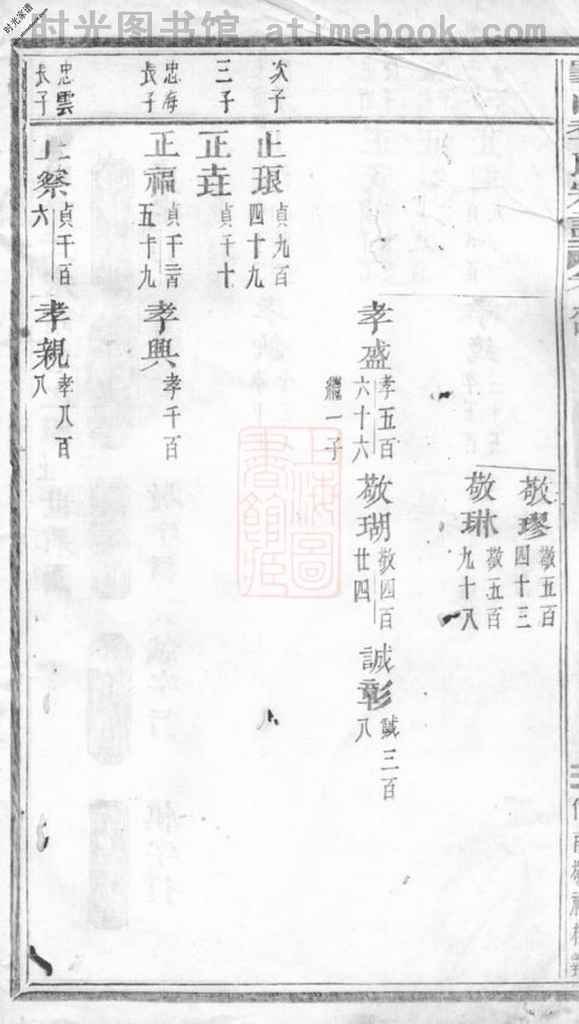 时光图书馆 www.atimebook.com
时光家谱
敬璆 敬五百四十三
敬琳 敬五百九十八
孝盛 孝五百六十六 繼一子
敬瑚 敬四百廿四
誠彰 誠三百八
次子
正琅 貞九百四十九
三子
正垚 貞千十
忠海長子
正福 貞千二百五十九
孝興 孝千百
忠雲長子
正察 貞千百六
孝親 孝八百八
上海圖書館藏